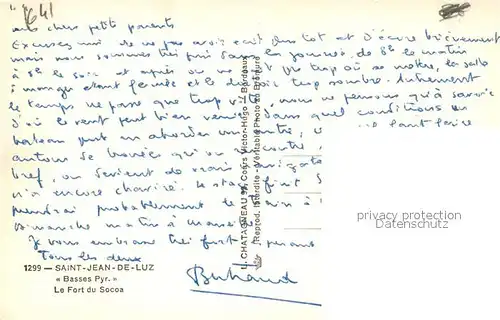 641
mes chers petits parents
Excusez moi de ne pas avoir écrit plus tôt et d'écrire brièvement
mais nous sommes très pris dans la journée, de 8h le matin
à 8h le soir et après on ne sait pas trop où se mettre, la salle
à manger étant fermée et le dortoir trop sombre. Autrement
le temps ne passe que trop vite, nous ne pensons qu'à savoir
d'où le vent peut bien venir, dans quel conditions un
bateau peut en aborder un autre, faut faire
autour de bouées qu'on rencontre,
bref, on devient de vrais navigateurs
n'a encore chaviré. Le stage finit
prendrai probablement le train à
Dimanche matin à
Je vous embrasse très fort
Tous les deux
Bertrand
1299 — SAINT-JEAN-DE-LUZ
« Basses Pyr. »
Le Fort du Socoa
L. CHATAGNEAU 99, Cours Victor-Hugo - Bordeaux
Reprod. Interdite - Véritable Photo au Bromure
privacy protection
datenschutz